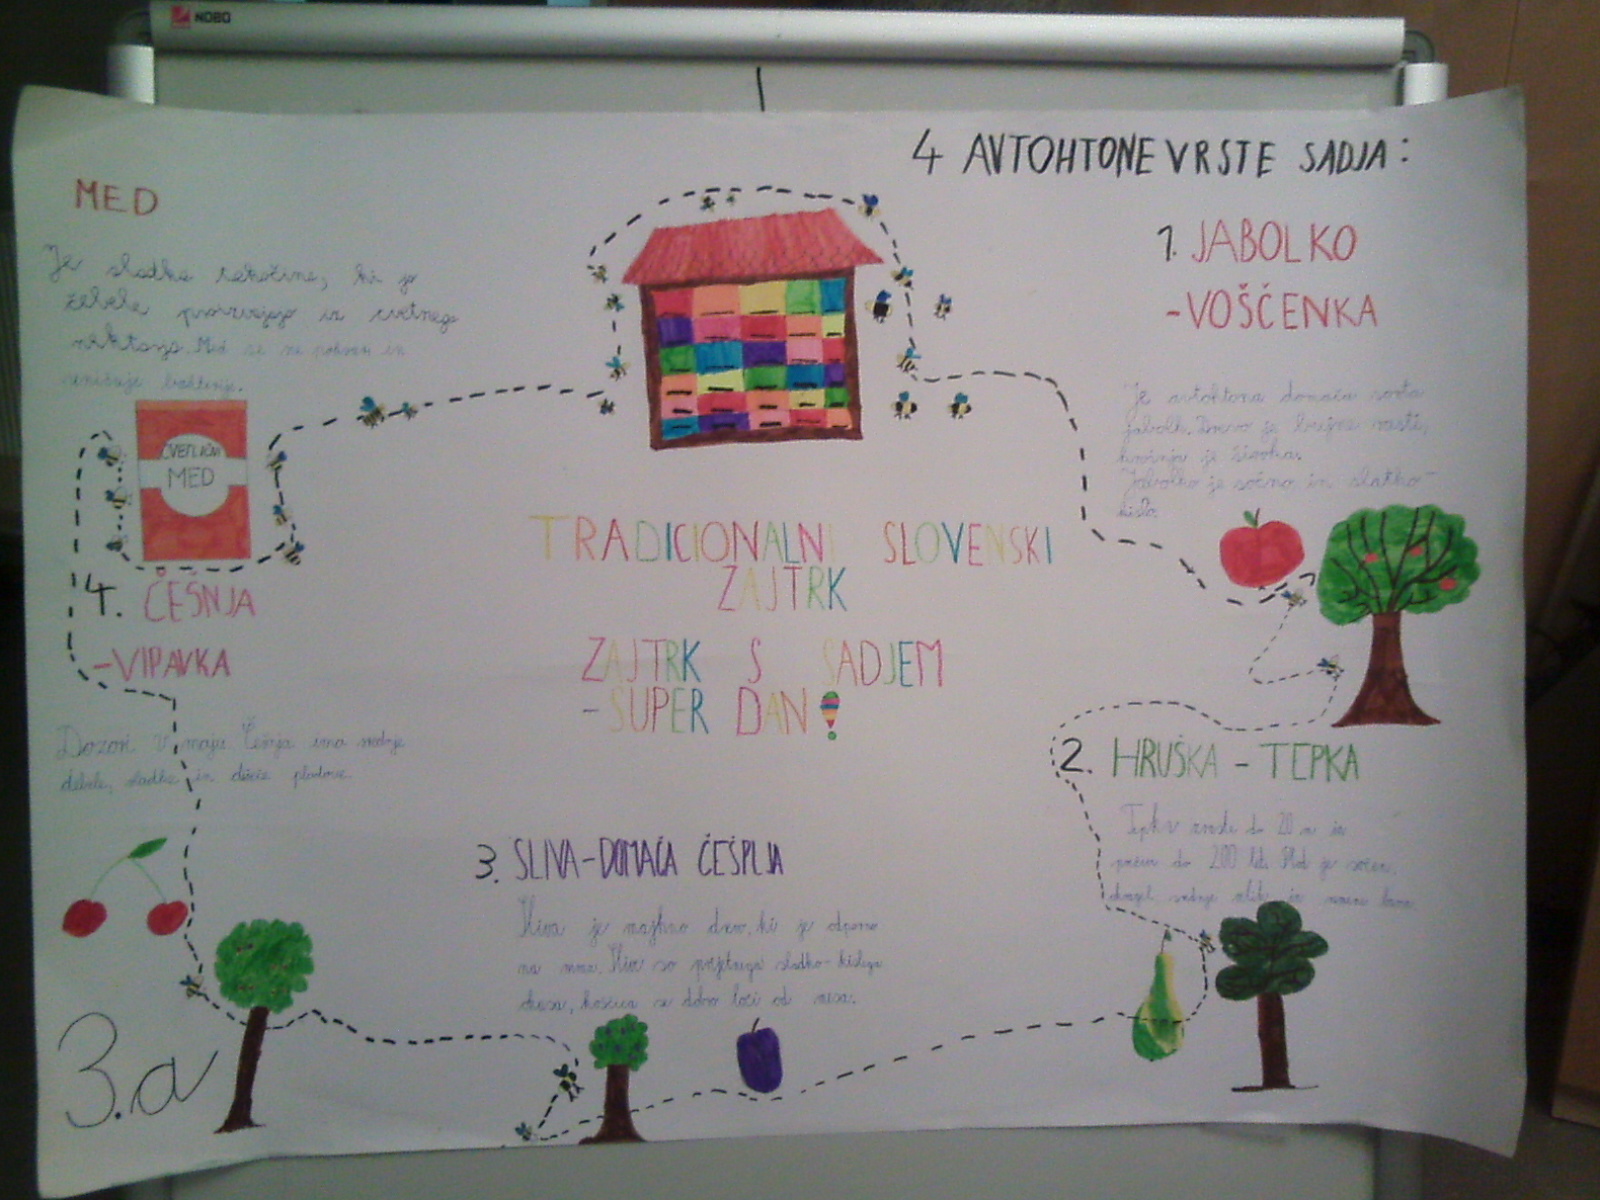 NOBO
4 AVTOHTONE VRSTE SADJA:
MED
Je sladka tekočina, ki jo
čebele proizvajajo iz cvetnega
nektarja. Med se ne pokvari in
uničuje bakterije.
CVETLIČNI
MED
1. JABOLKO
-VOŠČENKA
Je avtohtona domača sorta
jabolk. Drevo je bujne rasti,
krošnja je široka.
Jabolko je sočno in slatko-
kislo.
TRADICIONALNI SLOVENSKI
ZAJTRK
ZAJTRK S SADJEM
-SUPER DAN!
4. ČEŠNJA
-VIPAVKA
Dozori v maju. Češnja ima srednje
debele, sladke in čvrste plodove.
2. HRUŠKA - TEPKA
Tepka zraste do 20 m in
do 200 let. Plod je sočen,
3. SLIVA-DOMAČA ČEŠPLJA
Sliva je majhno drevo, ki je odporno
na mraz. Slive so prijetnega sladko-kislega
okusa, koščica se dobro loči od mesa.
3.a